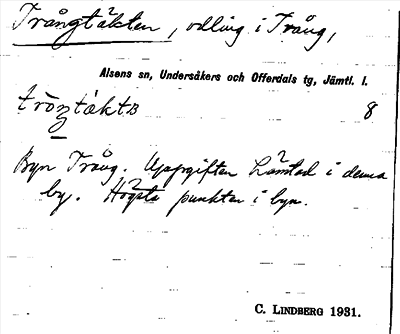 Trångtäkten, odling i Trång,
Alsens sn, Undersåkers och Offerdals tg, Jämtl. l.
8
Byn Trång. Uppgiften lämnad i denna
by. Högsta punkten i byn.
C. LINDBERG 1931.